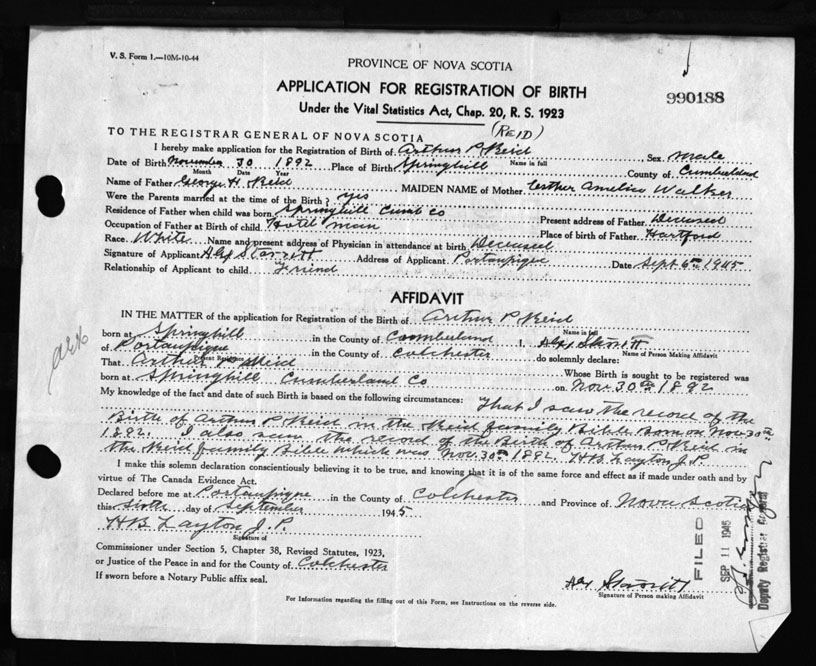 V. S. Form 1.—10M-10-44
PROVINCE OF NOVA SCOTIA
APPLICATION FOR REGISTRATION OF BIRTH
990188
Under the Vital Statistics Act, Chap. 20, R. S. 1923
(REID)
TO THE REGISTRAR GENERAL OF NOVA SCOTIA
I hereby make application for the Registration of Birth of Arthur P Reid Sex male
Name in full
Date of Birth November 30 1892 Place of Birth Springhill County of Cumberland
Month Date Year
Name of Father George H. Reid MAIDEN NAME of Mother Esther Amelia Walker
Were the Parents married at the time of the Birth? yes
Residence of Father when child was born Springhill Cumb Co Present address of Father Deceased
Occupation of Father at Birth of child Hotel man Place of birth of Father Hartford
Race White Name and present address of Physician in attendance at birth Deceased
Signature of Applicant Alex Starratt Address of Applicant Portaupique Date Sept 6th 1945
Relationship of Applicant to child Friend
AFFIDAVIT
IN THE MATTER of the application for Registration of the Birth of Arthur P Reid
Name in full
born at Springhill in the County of Cumberland I, Alex Starratt
of Portaupique in the County of Colchester do solemnly declare:
Present Residence Name of Person Making Affidavit
That Arthur P Reid Whose Birth is sought to be registered was
born at Springhill Cumberland Co on Nov. 30th 1892
My knowledge of the fact and date of such Birth is based on the following circumstances: That I saw the record of the
Birth of Arthur P Reid in the Reid family Bible Born on Nov 30th
1892. I also saw the record of the Birth of Arthur P Reid in
the Reid family Bible which was Nov. 30th 1892. HB Layton J.P.
I make this solemn declaration conscientiously believing it to be true, and knowing that it is of the same force and effect as if made under oath and by
virtue of The Canada Evidence Act.
Declared before me at Portaupique in the County of Colchester and Province of Nova Scotia
this Sixth day of September 1945
HB Layton J.P.
Signature of
Commissioner under Section 5, Chapter 38, Revised Statutes, 1923,
or Justice of the Peace in and for the County of Colchester
If sworn before a Notary Public affix seal.
Alex Starratt
Signature of Person making Affidavit
FILED
SEP 11 1945
Deputy Registrar General
For Information regarding the filling out of this Form, see Instructions on the reverse side.